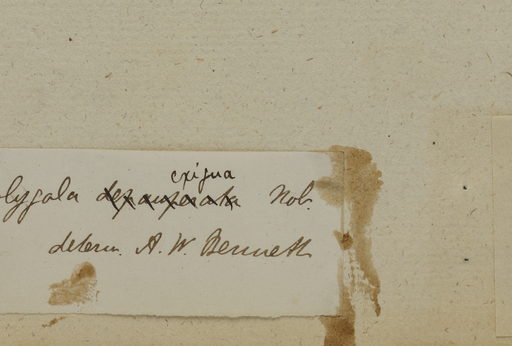 exigua
olygala depauperata Nob.
determ. A. W. Bennett